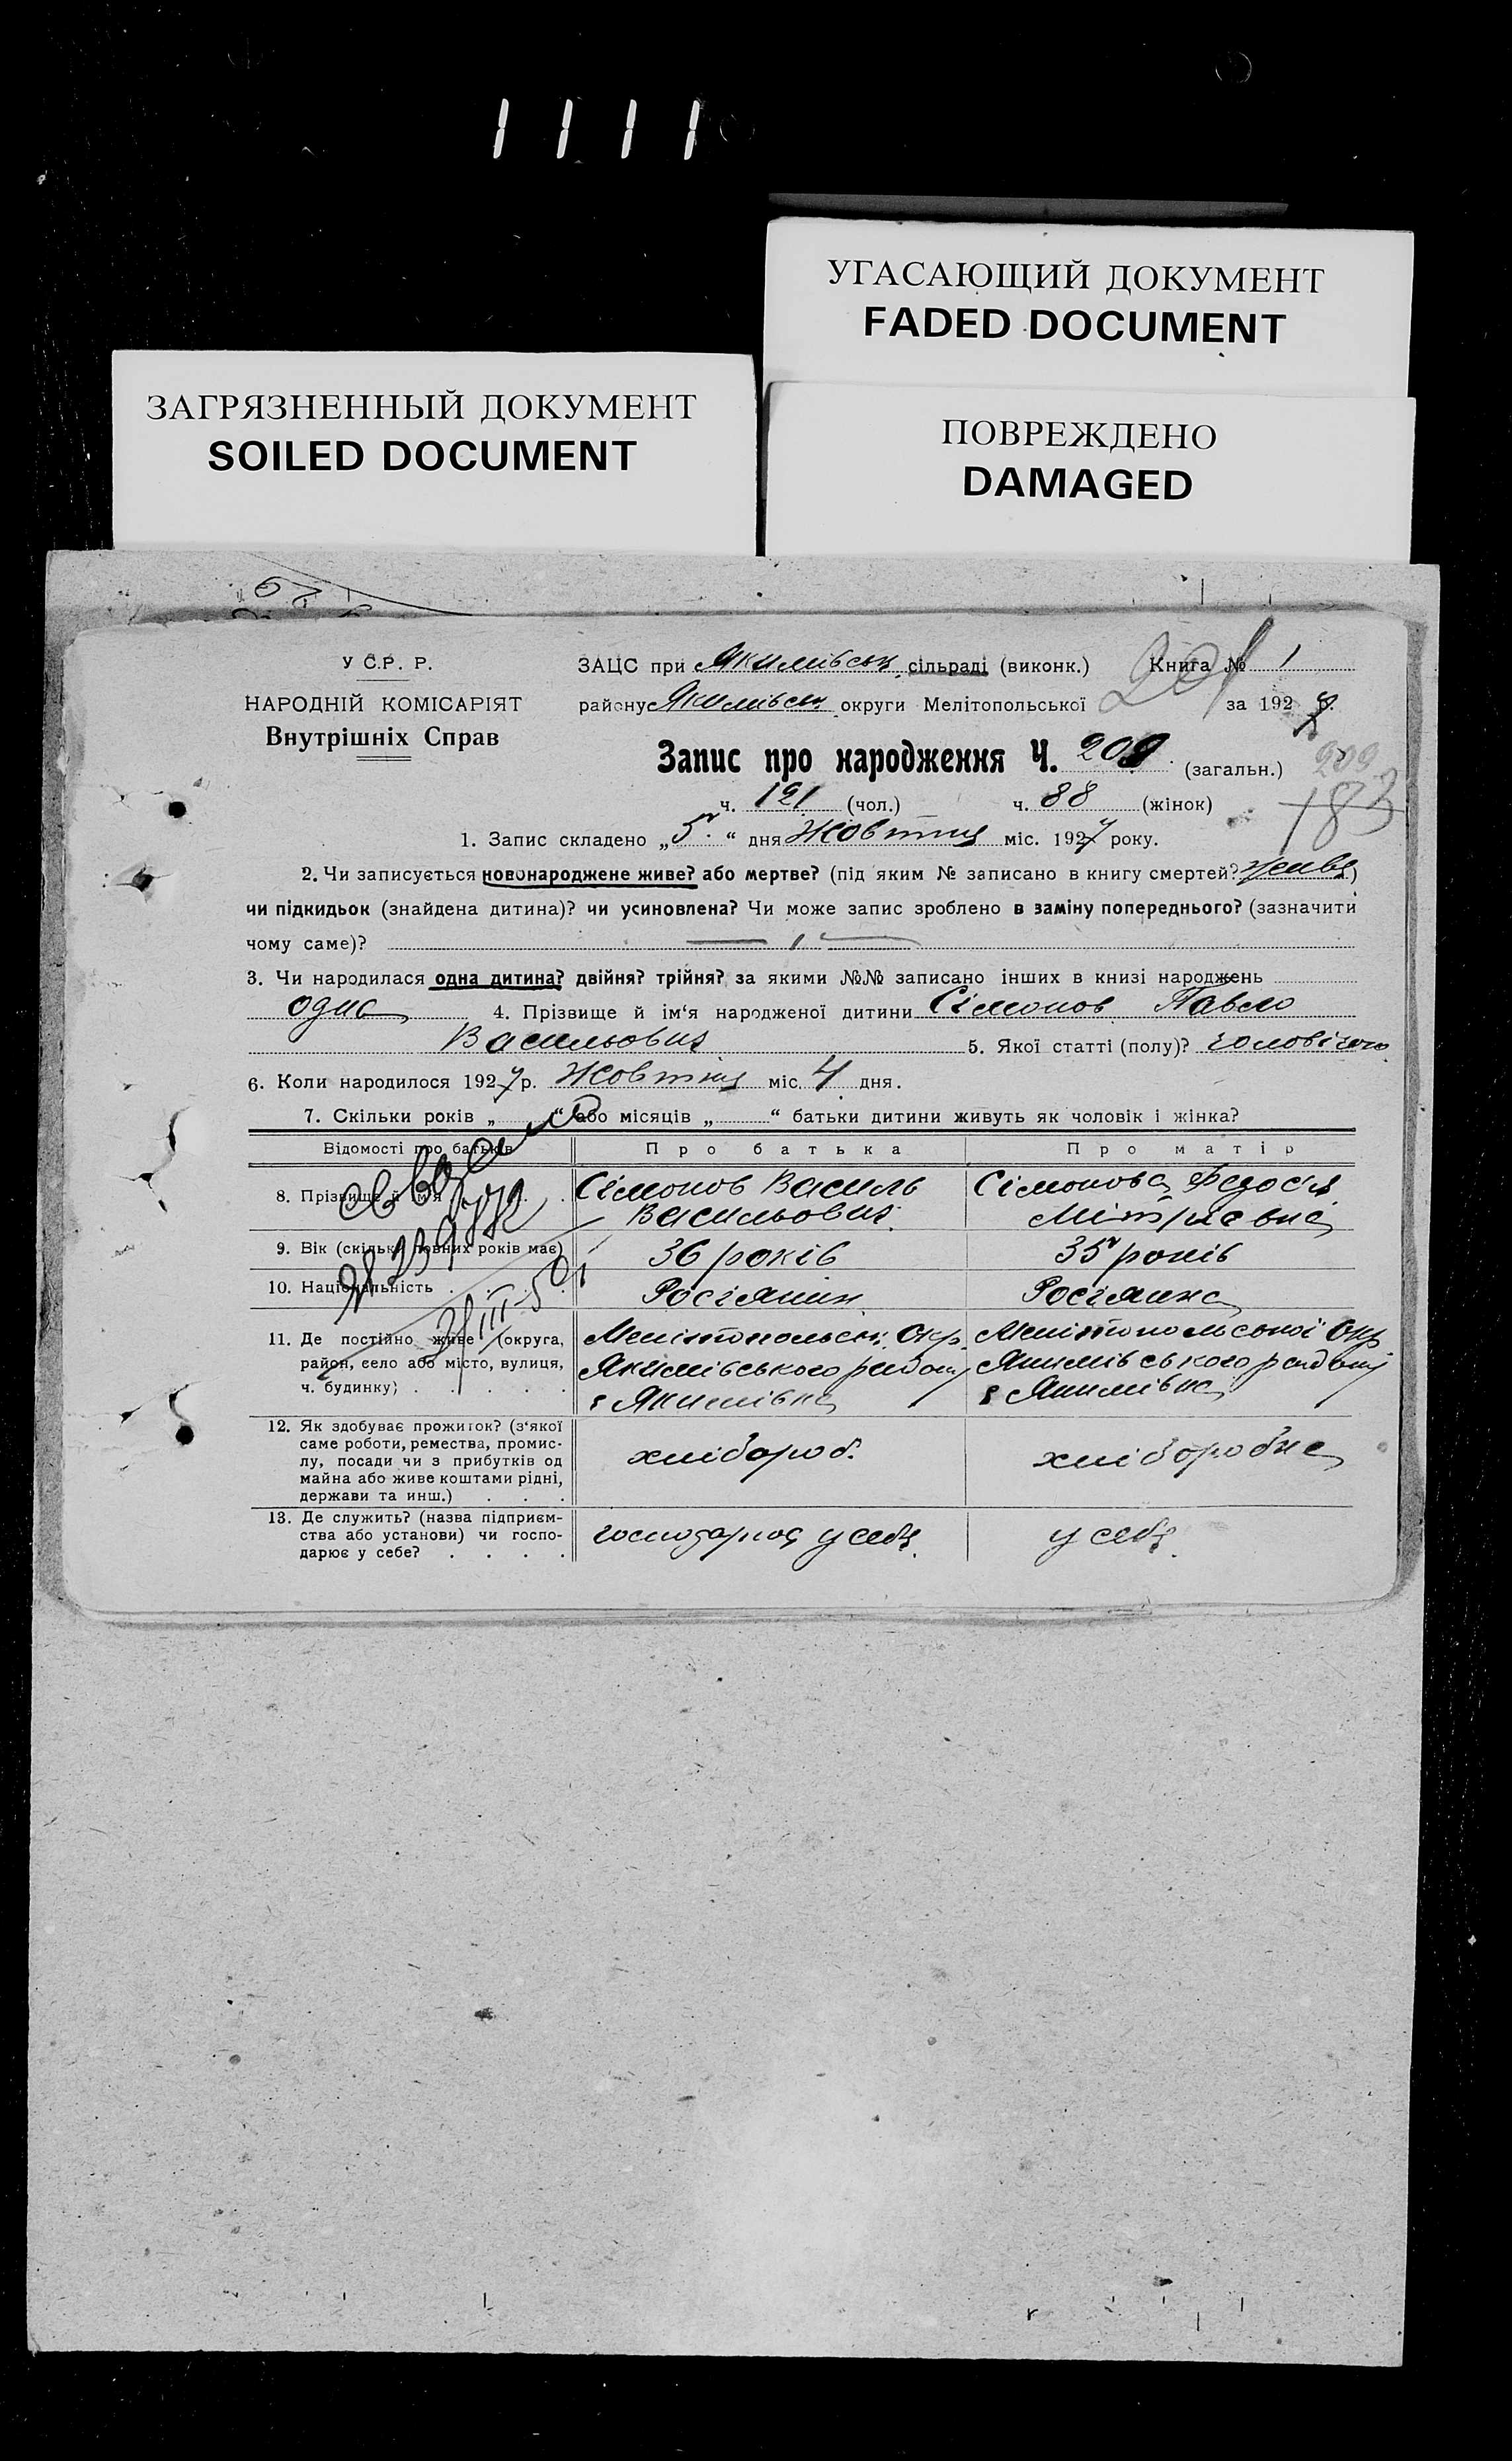 1 1 1 1
УГАСАЮЩИЙ ДОКУМЕНТ
FADED DOCUMENT
ЗАГРЯЗНЕННЫЙ ДОКУМЕНТ
SOILED DOCUMENT
ПОВРЕЖДЕНО
DAMAGED
У С.Р. Р.
НАРОДНІЙ КОМІСАРІЯТ
Внутрішніх Справ
ЗАЦС при Якимівськ. сільраді (виконк.) Книга № 1
201
району Якимівськ. округи Мелітопольської за 1927 р.
Запис про народження Ч. 209 (загальн.)
209
183
ч. 121 (чол.) ч. 88 (жінок)
1. Запис складено „5“ дня Жовтня міс. 1927 року.
2. Чи записується новонароджене живе? або мертве? (під яким № записано в книгу смертей? живе)
чи підкидьок (знайдена дитина)? чи усиновлена? Чи може запис зроблено в заміну попереднього? (зазначити
чому саме)?
3. Чи народилася одна дитина? двійня? трійня? за якими №№ записано інших в книзі народжень
одна 4. Прізвище й ім‘я народженої дитини Сімонов Павло
Васильович 5. Якої статті (полу)? чоловічого
6. Коли народилося 1927 р. Жовтня міс. 4 дня.
7. Скільки років „ “ або місяців „ “ батьки дитини живуть як чоловік і жінка?
Відомості про батьків Про батька Про матір
8. Прізвище й ім‘я . . . Сімонов Василь Сімонова Федосія
Васильович. Мітріевна
9. Вік (скільки повних років має) 36 років 35 років
10. Національність . . . . Росіянин Росіянка
11. Де постійно живе (округа, Мелітопольськ. Окр. Мелітопольської Окр
район, село або місто, вулиця, Якимівського району Якимівського району
ч. будинку) . . . . . . с Якимівка с Якимівка
12. Як здобуває прожиток? (з‘якої
саме роботи, ремества, промис-
лу, посади чи з прибутків од
майна або живе коштами рідні,
держави та инш.) . . .
хлібороб. хлібороб­ка
13. Де служить? (назва підприєм-
ства або установи) чи госпо-
дарює у себе? . . . .
господарює у себе. у себе.